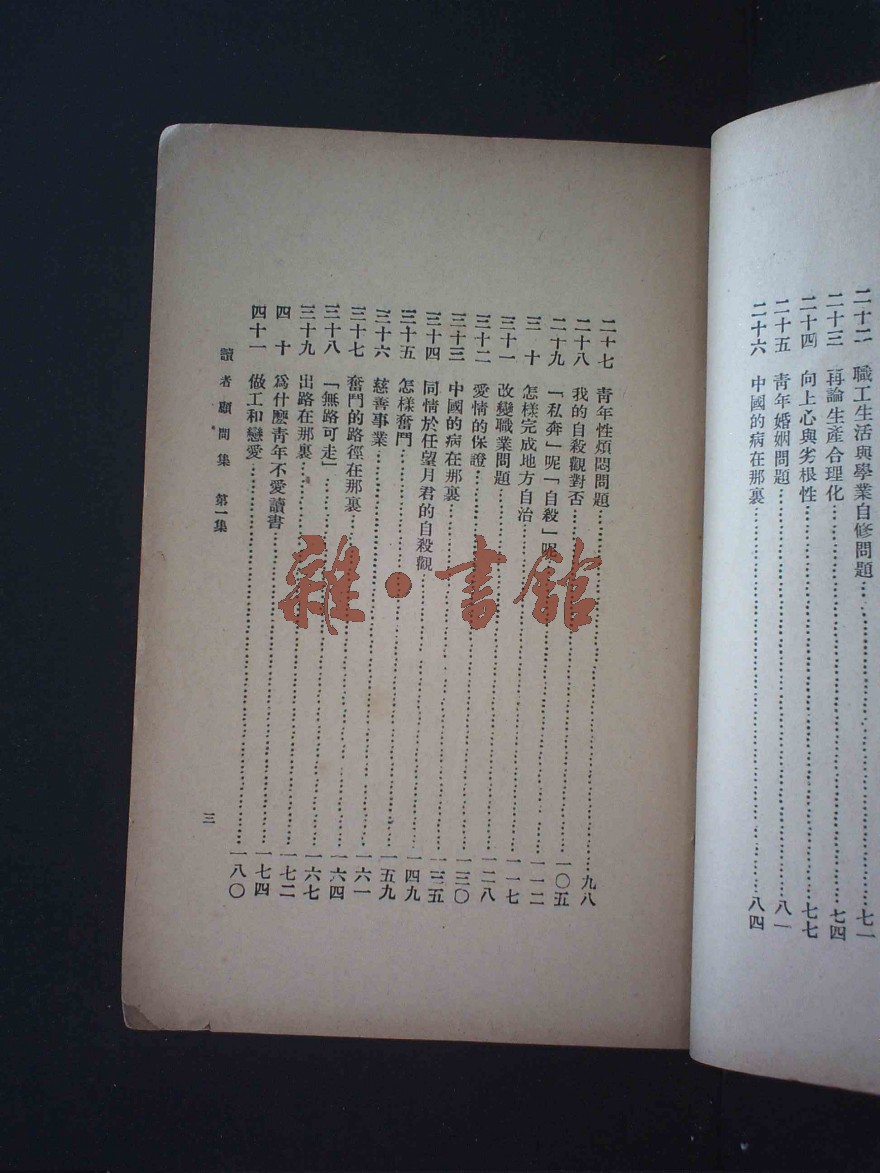 二十二 職工生活與學業自修問題……七一
二十三 再論生產合理化……七四
二十四 向上心與劣根性……七七
二十五 青年婚姻問題……八一
二十六 中國的病在那裏……八四
二十七 青年性煩悶問題……九八
二十八 我的自殺觀對否……一〇五
二十九 「私奔」呢「自殺」呢……一一二
三十 怎樣完成地方自治……一一七
三十一 改變職業問題……一二八
三十二 愛情的保證……一三〇
三十三 中國的病在那裏……一三五
三十四 同情於任望月君的自殺觀……一四九
三十五 怎樣奮鬥……一五九
三十六 慈善事業……一六一
三十七 奮鬥的路徑在那裏……一六四
三十八 「無路可走」……一六七
三十九 出路在那裏……一七二
四十 爲什麼青年不愛讀書……一七四
四十一 做工和戀愛……一八〇
讀者顧問集 第一集
三
雜·書館